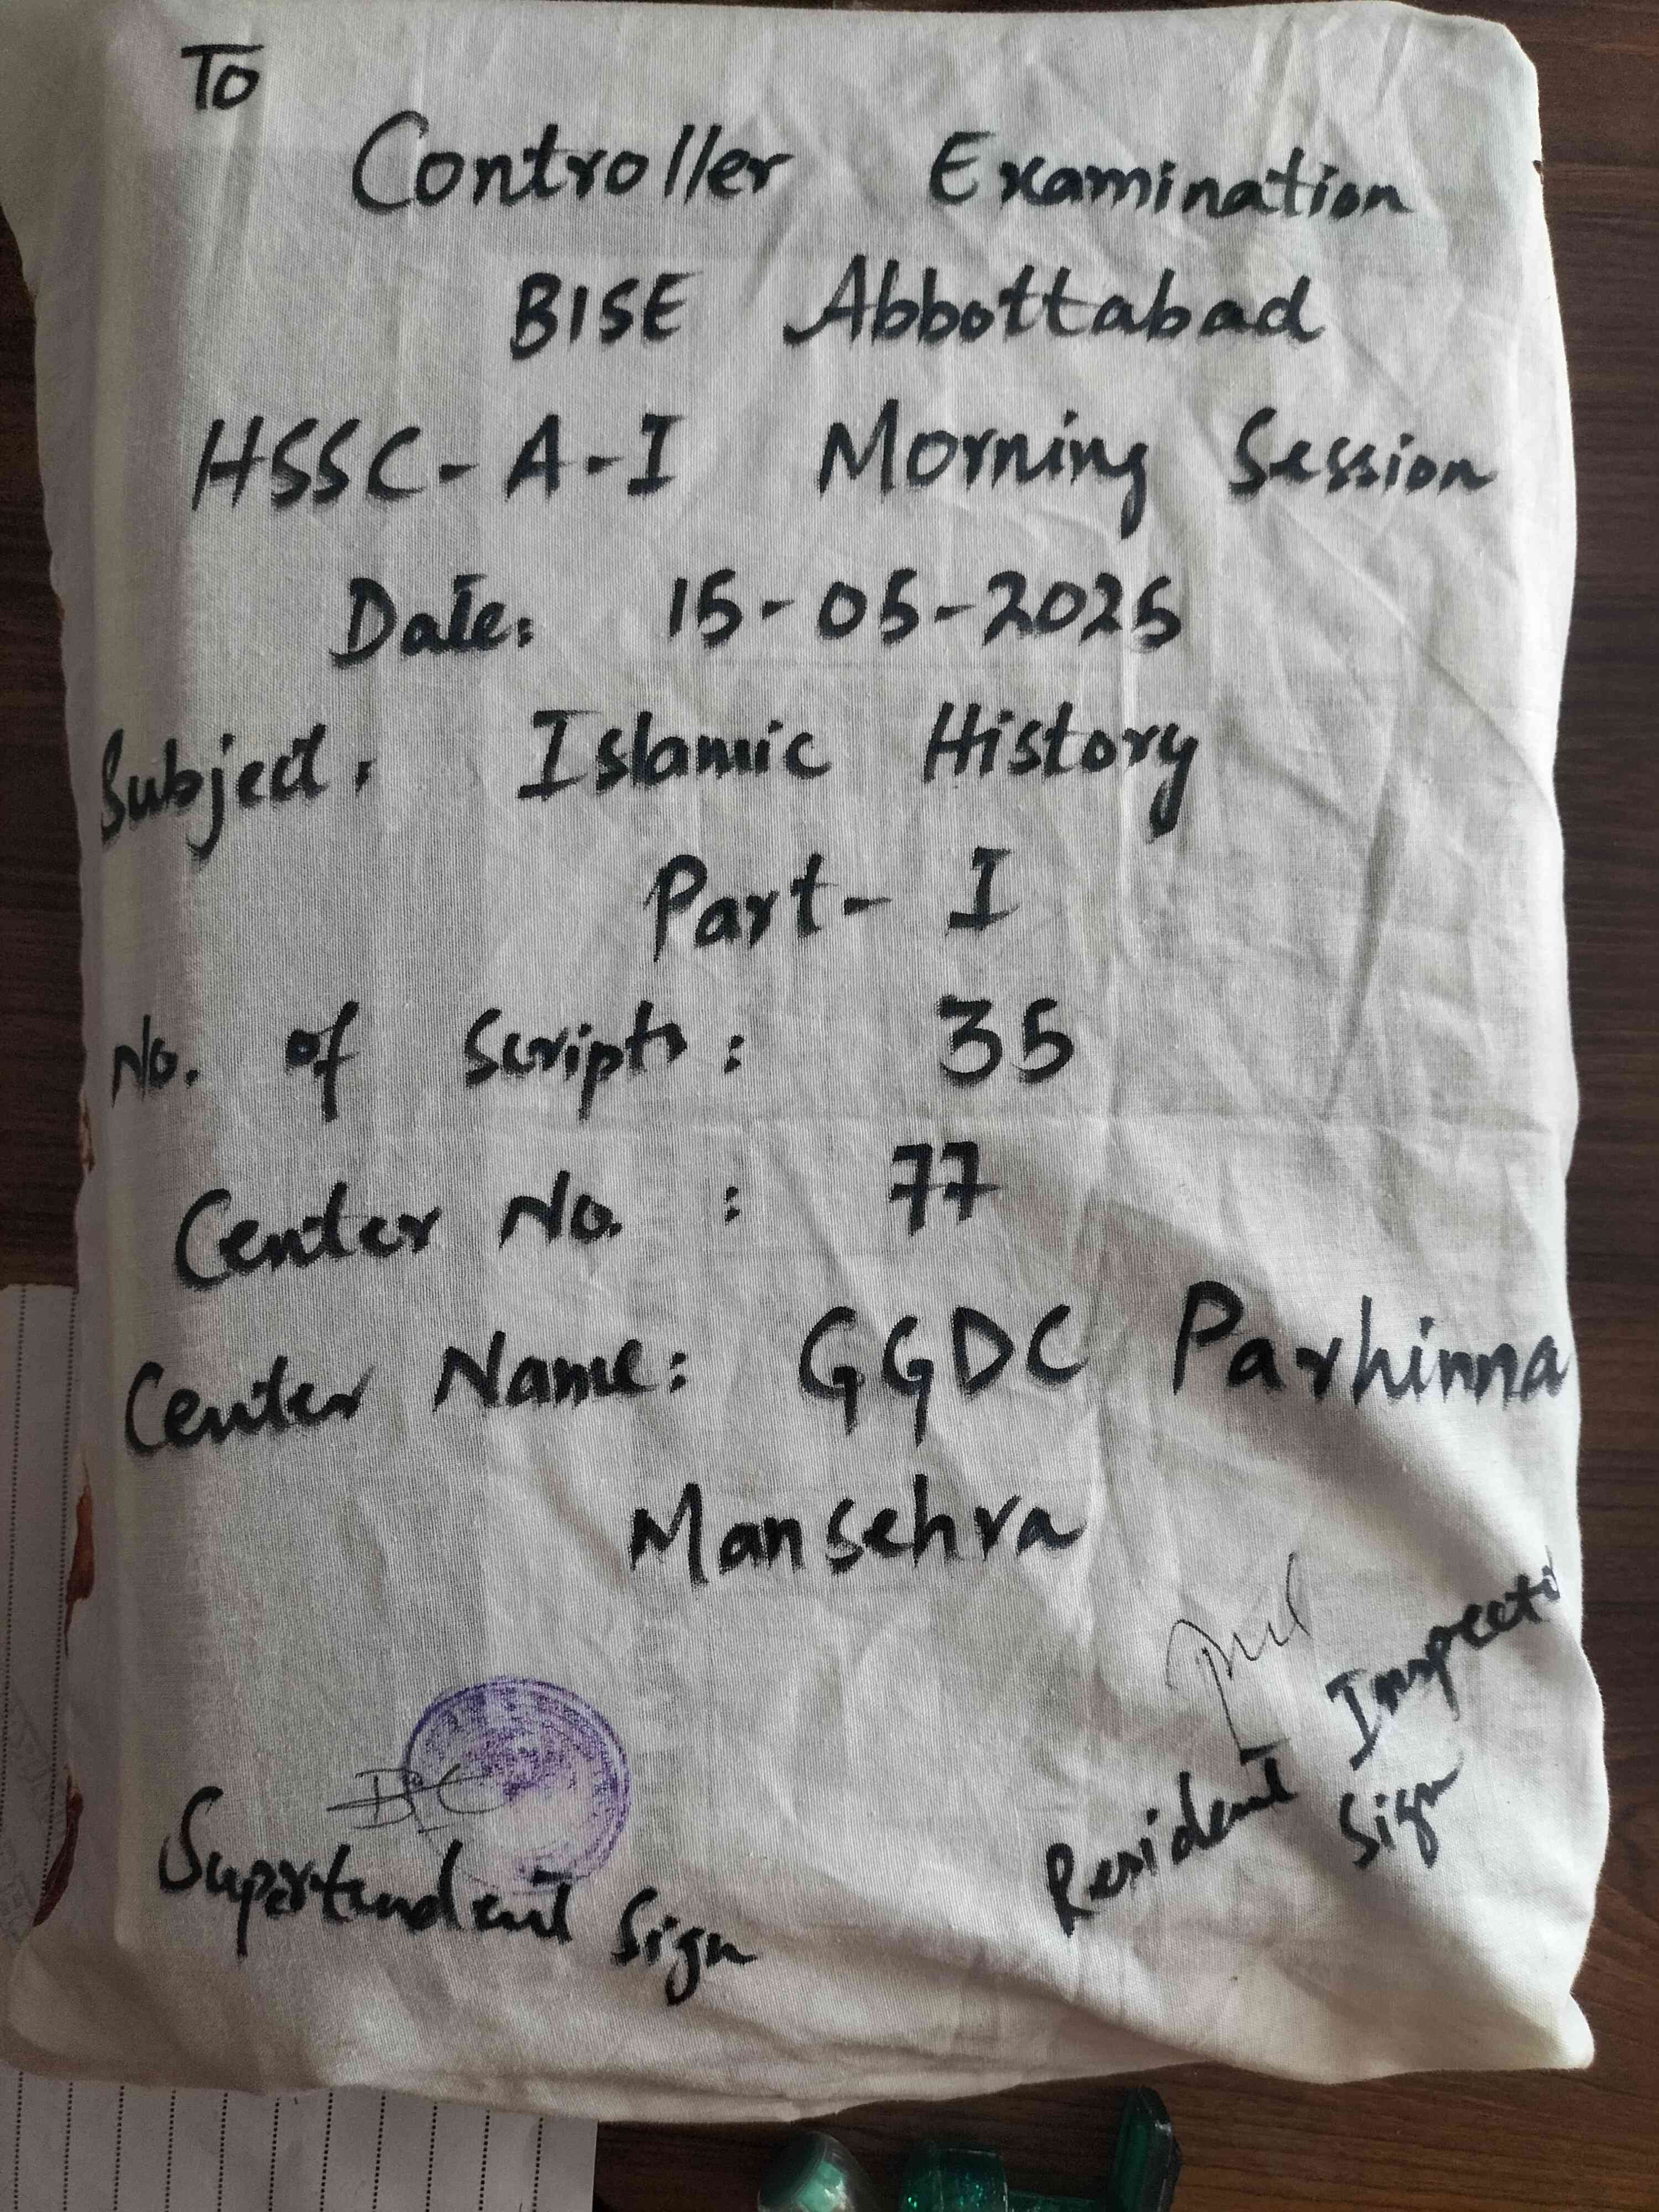 To
Controller Examination
BISE Abbottabad
HSSC-A-I Morning Session
Date: 15-05-2025
Subject: Islamic History
Part-I
No. of Scripts: 35
Center No. : 77
Center Name: GGDC Parhinna
Mansehra
Supertendent Sign
Resident Inspector
Sign